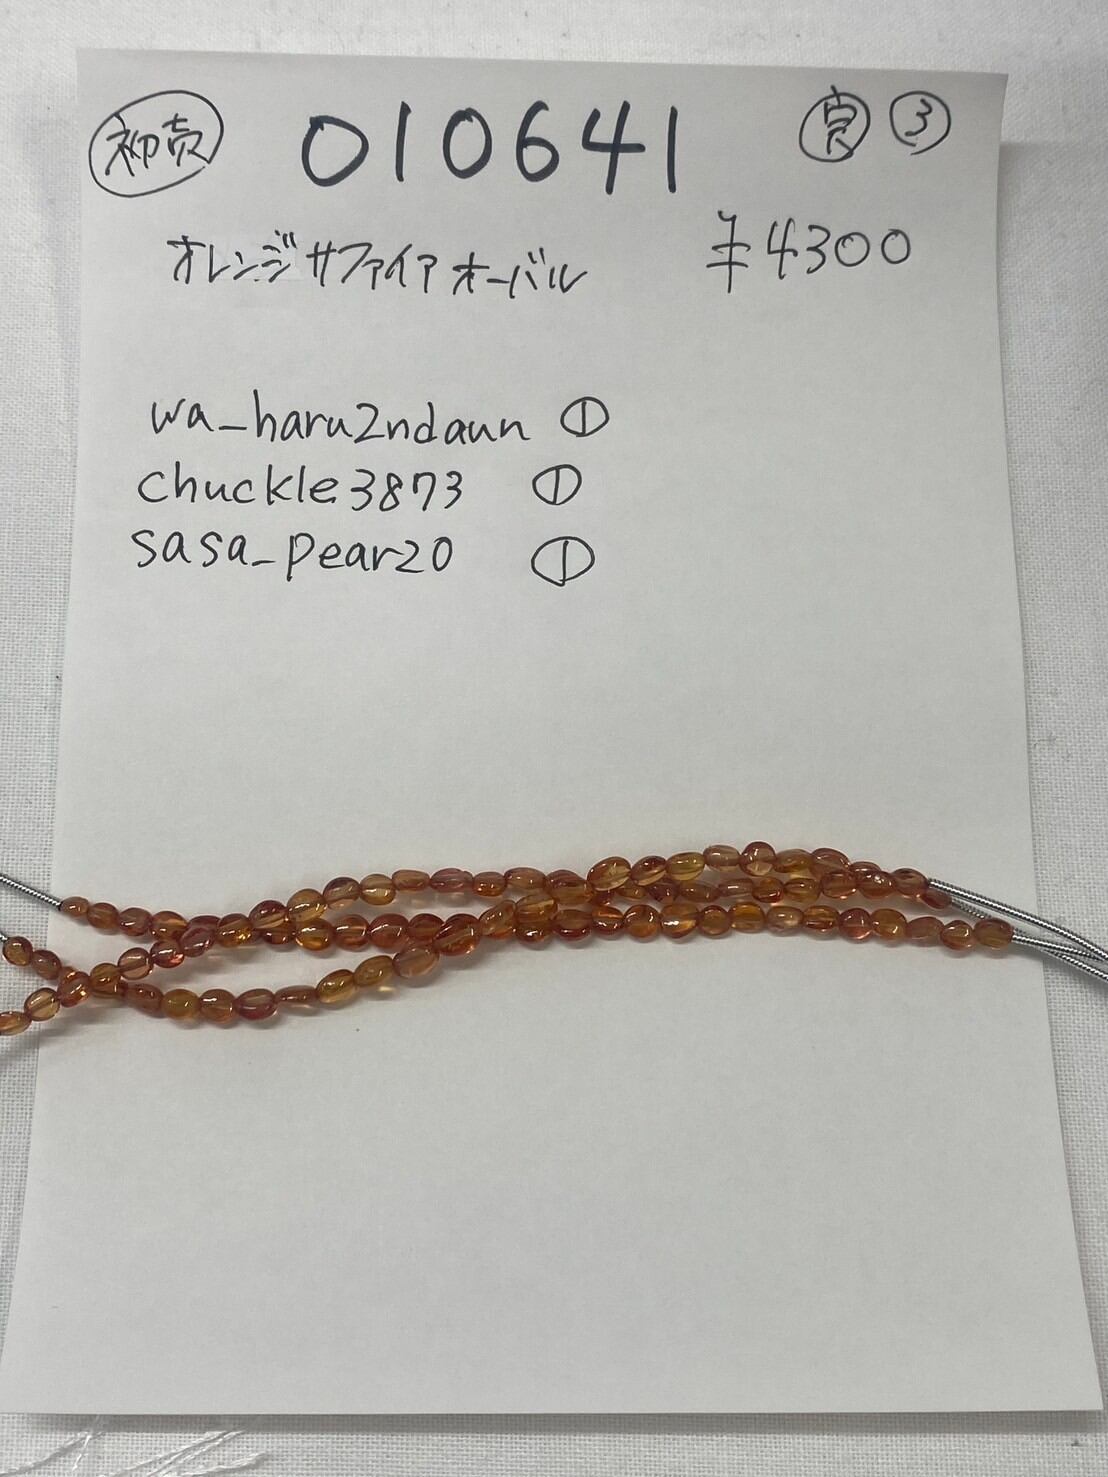 柳売 010641 良 ③
オレンジサファイア オーバル ¥4300
wa_haru2ndaun ①
chuckle3873 ①
sasa_pear20 ①